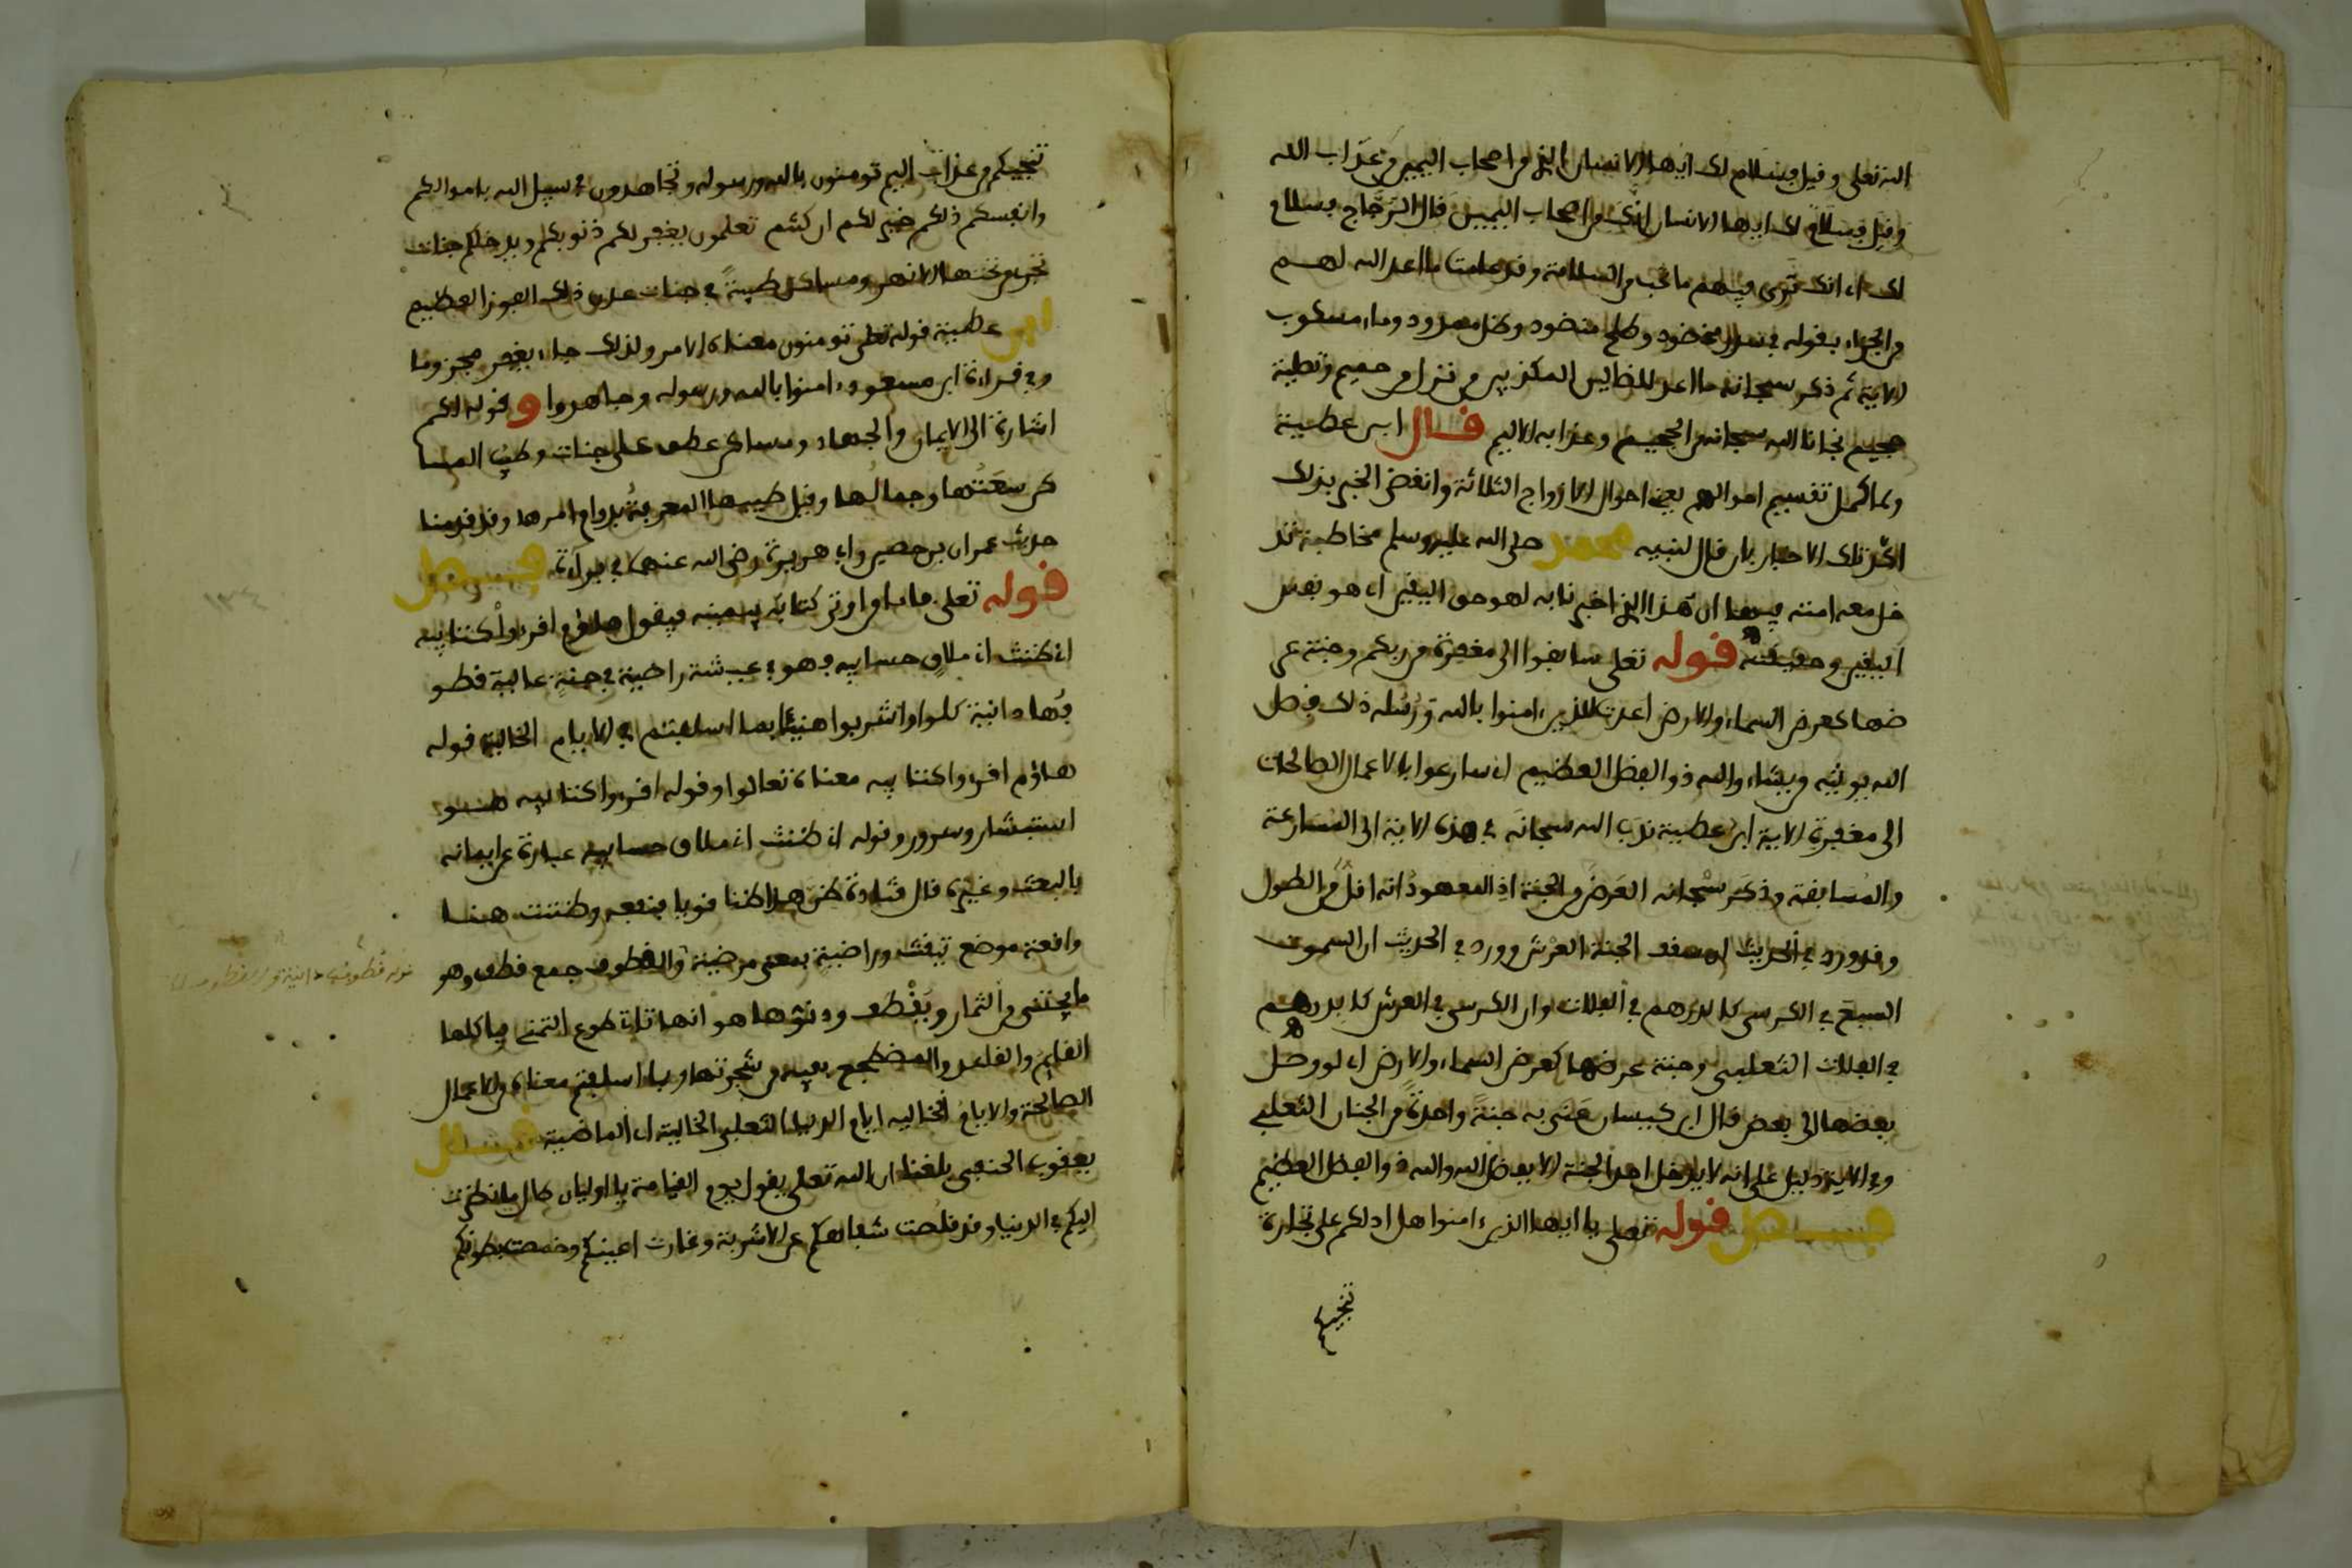 الله تعلى وفيل فسلام لك ايها الانسان الذي من اصحاب اليمين من عذاب الله
وفيل فسلام لك ايها الانسان انك من اصحاب اليمين فال الزجاج فسلام
لك اي انك ترى فيهم ما تحب من السلامة وفد علمت ما اعد الله لهم
من الجزاء بفوله في سدر مخضود وطلح منضود وظل ممدود وماء مسكوب
الاية ثم ذكر سبحانه ما اعد للضالين المكذبين من نزل من حميم وتصلية
جحيم نجانا الله سبحانه من الجحيم وعذابه الاليم فال ابن عطية
ولما كمل تفسيم احوالهم يعني احوال الازواج الثلاثة وانفضى الخبر بذلك
اكد تلك الاخبار بان فال لنبيه محمد صلى الله عليه وسلم مخاطبة تد
خل معه امته فيها ان هذا الذي اخبرنا به لهو حق اليفين اي هو نفس
اليفين وحفيفته فوله تعلى سابفوا الى مغفرة من ربكم وجنة عر
ضها كعرض السماء والارض اعدت للذين ءامنوا بالله ورسله ذلك فضل
الله يوتيه من يشاء والله ذو الفضل العظيم اي سارعوا بالاعمال الصالحات
الى مغفرة الاية ابن عطية ندب الله سبحانه في هذه الاية الى المسارعة
والمسابفة وذكر سبحانه العرض من الجنة اذ المعهود انه افل من الطول
وفد ورد في الحديث ان سفف الجنة العرش وورد في الحديث ان السموت
السبع في الكرسي كالدرهم في الفلات وان الكرسي في العرش كالدرهم
في الفلات الثعلبي وجنة عرضها كعرض السماء والارض اي لو وصل
بعضها الى بعض فال ابن كيسان عنى به جنة واحدة من الجنان الثعلبي
وفي الاية دليل على انه لا يدخل احد الجنة الا بفضل الله والله ذو الفضل العظيم
فصل فوله تعلى يا ايها الذين ءامنوا هل ادلكم على تجارة
تنجيكم
تنجيكم من عذاب اليم تومنون بالله ورسوله وتجاهدون في سبيل الله باموالكم
وانفسكم ذلكم خير لكم ان كنتم تعلمون يغفر لكم ذنوبكم ويدخلكم جنات
تجري من تحتها الانهر ومساكن طيبة في جنات عدن ذلك الفوز العظيم
ابن عطية فوله تعلى تومنون معناه الامر ولذلك جاء يغفر مجزوما
وفي فراءة ابن مسعود ءامنوا بالله ورسوله وجاهدوا وفوله ذلكم
اشارة الى الايمان والجهاد ومساكن عطف على جنات وطيب المسا
كن سعتها وجمالها وفيل طيبها المعرفة بدوام امرها وفد فدمنا
حديث عمران بن حصين وابي هريرة رضي الله عنهما في براءة فصل
فوله تعلى فاما من اوتي كتابه بيمينه فيفول هاؤم افرءوا كتابيه
اني ظننت اني ملاق حسابيه فهو في عيشة راضية في جنة عالية فطو
فها دانية كلوا واشربوا هنيئا بما اسلفتم في الايام الخالية فوله
هاؤم افرءوا كتابيه معناه تعالوا وفوله افرءوا كتابيه هو
استبشار وسرور وفوله اني ظننت اني ملاق حسابيه عبارة عن ايمانه
بالبعث وغيره فال فتادة ظن هذا ظنا فويا فنفعه وظننت هنا
وافعة موضع تيفنت وراضية بمعنى مرضية والفطوف جمع فطف وهو
ما يجتنى من الثمار ويفطف ودنوها هو انها تاتي طوع التمني فياكلها
الفايم والفاعد والمضطجع بفيه من شجرتها وبما اسلفتم معناه من الاعمال
الصالحة والايام الخالية ايام الدنيا الثعلبي الخالية اي الماضية فال
يعفوب الحنفي بلغنا ان الله تعلى يفول يوم الفيامة يا اولياي طال ما نظرت
اليكم في الدنيا وفد فلصت شفاهكم عن الاشربة وغارت اعينكم وخمصت بطونكم